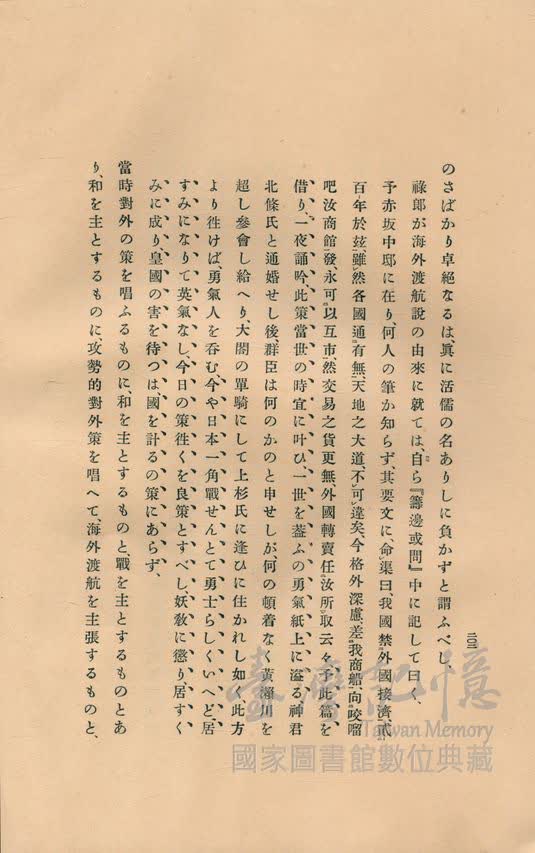 二〇二
のさばかり卓絶なるは、眞に活儒の名ありしに負かずと謂ふべし、
祿郎が海外渡航說の由來に就ては、自ら『籌邊或問』中に記して曰く、
予赤坂中邸に在り、何人の筆か知らず、其要文に、命渠曰、我國禁外國接濟、貳
百年於玆、雖然各國通有無、天地之大道、不可違矣、今格外深慮、差我商船、向咬𠺕
吧汝商館發、永可以互市、然交易之貨更無、外國轉賣任汝所取云々、予此篇を
借り、一夜誦吟、此策當世の時宜に叶ひ、一世を葢ふの勇氣紙上に溢る、神君
北條氏と通婚せし後、群臣は何のかのと申せしが、何の頓着なく黃瀨川を
超し參會し給へり、大閤の單騎にして上杉氏に逢ひに往かれし如く、此方
より往けば、勇氣人を呑む、今や日本一角戰せんとて勇士らしくいへど、居
すみになりて英氣なし、今日の策往くを良策とすべし、妖敎に懲り居すく
みに成り、皇國の害を待つは、國を計るの策にあらず、
當時對外の策を唱ふるものに、和を主とするものと、戰を主とするものとあ
り、和を主とするものに、攻勢的對外策を唱へて、海外渡航を主張するものと、
臺灣記憶
Taiwan Memory
國家圖書館數位典藏